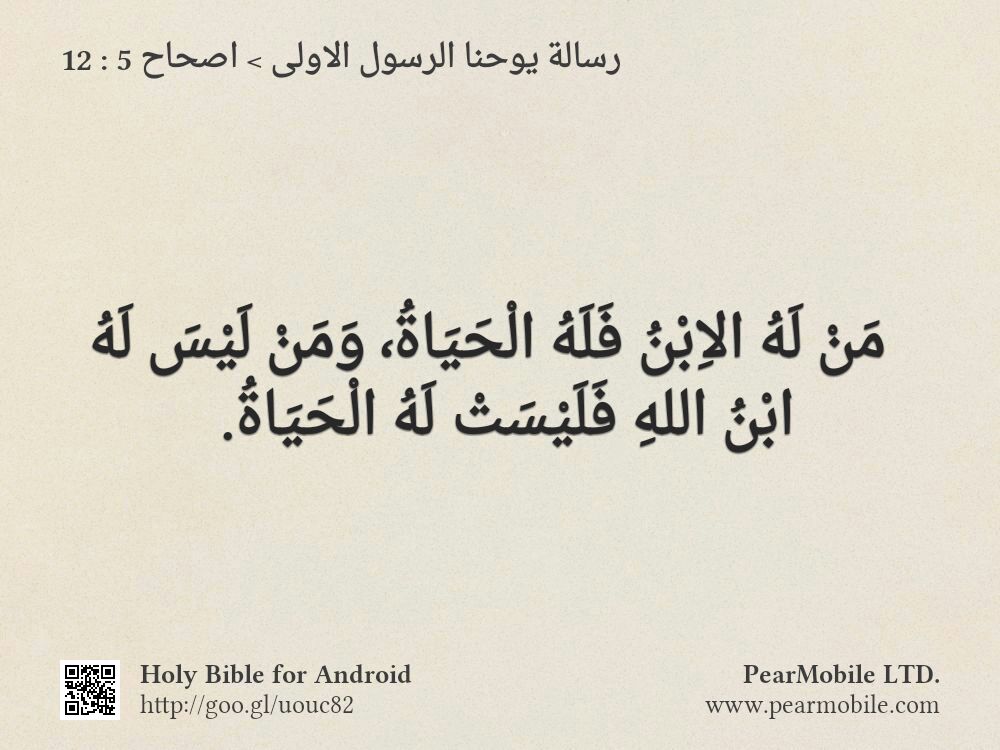 رسالة يوحنا الرسول الاولى > اصحاح 5 : 12
مَنْ لَهُ الاِبْنُ فَلَهُ الْحَيَاةُ، وَمَنْ لَيْسَ لَهُ
ابْنُ اللهِ فَلَيْسَتْ لَهُ الْحَيَاةُ.
Holy Bible for Android
http://goo.gl/uouc82
PearMobile LTD.
www.pearmobile.com